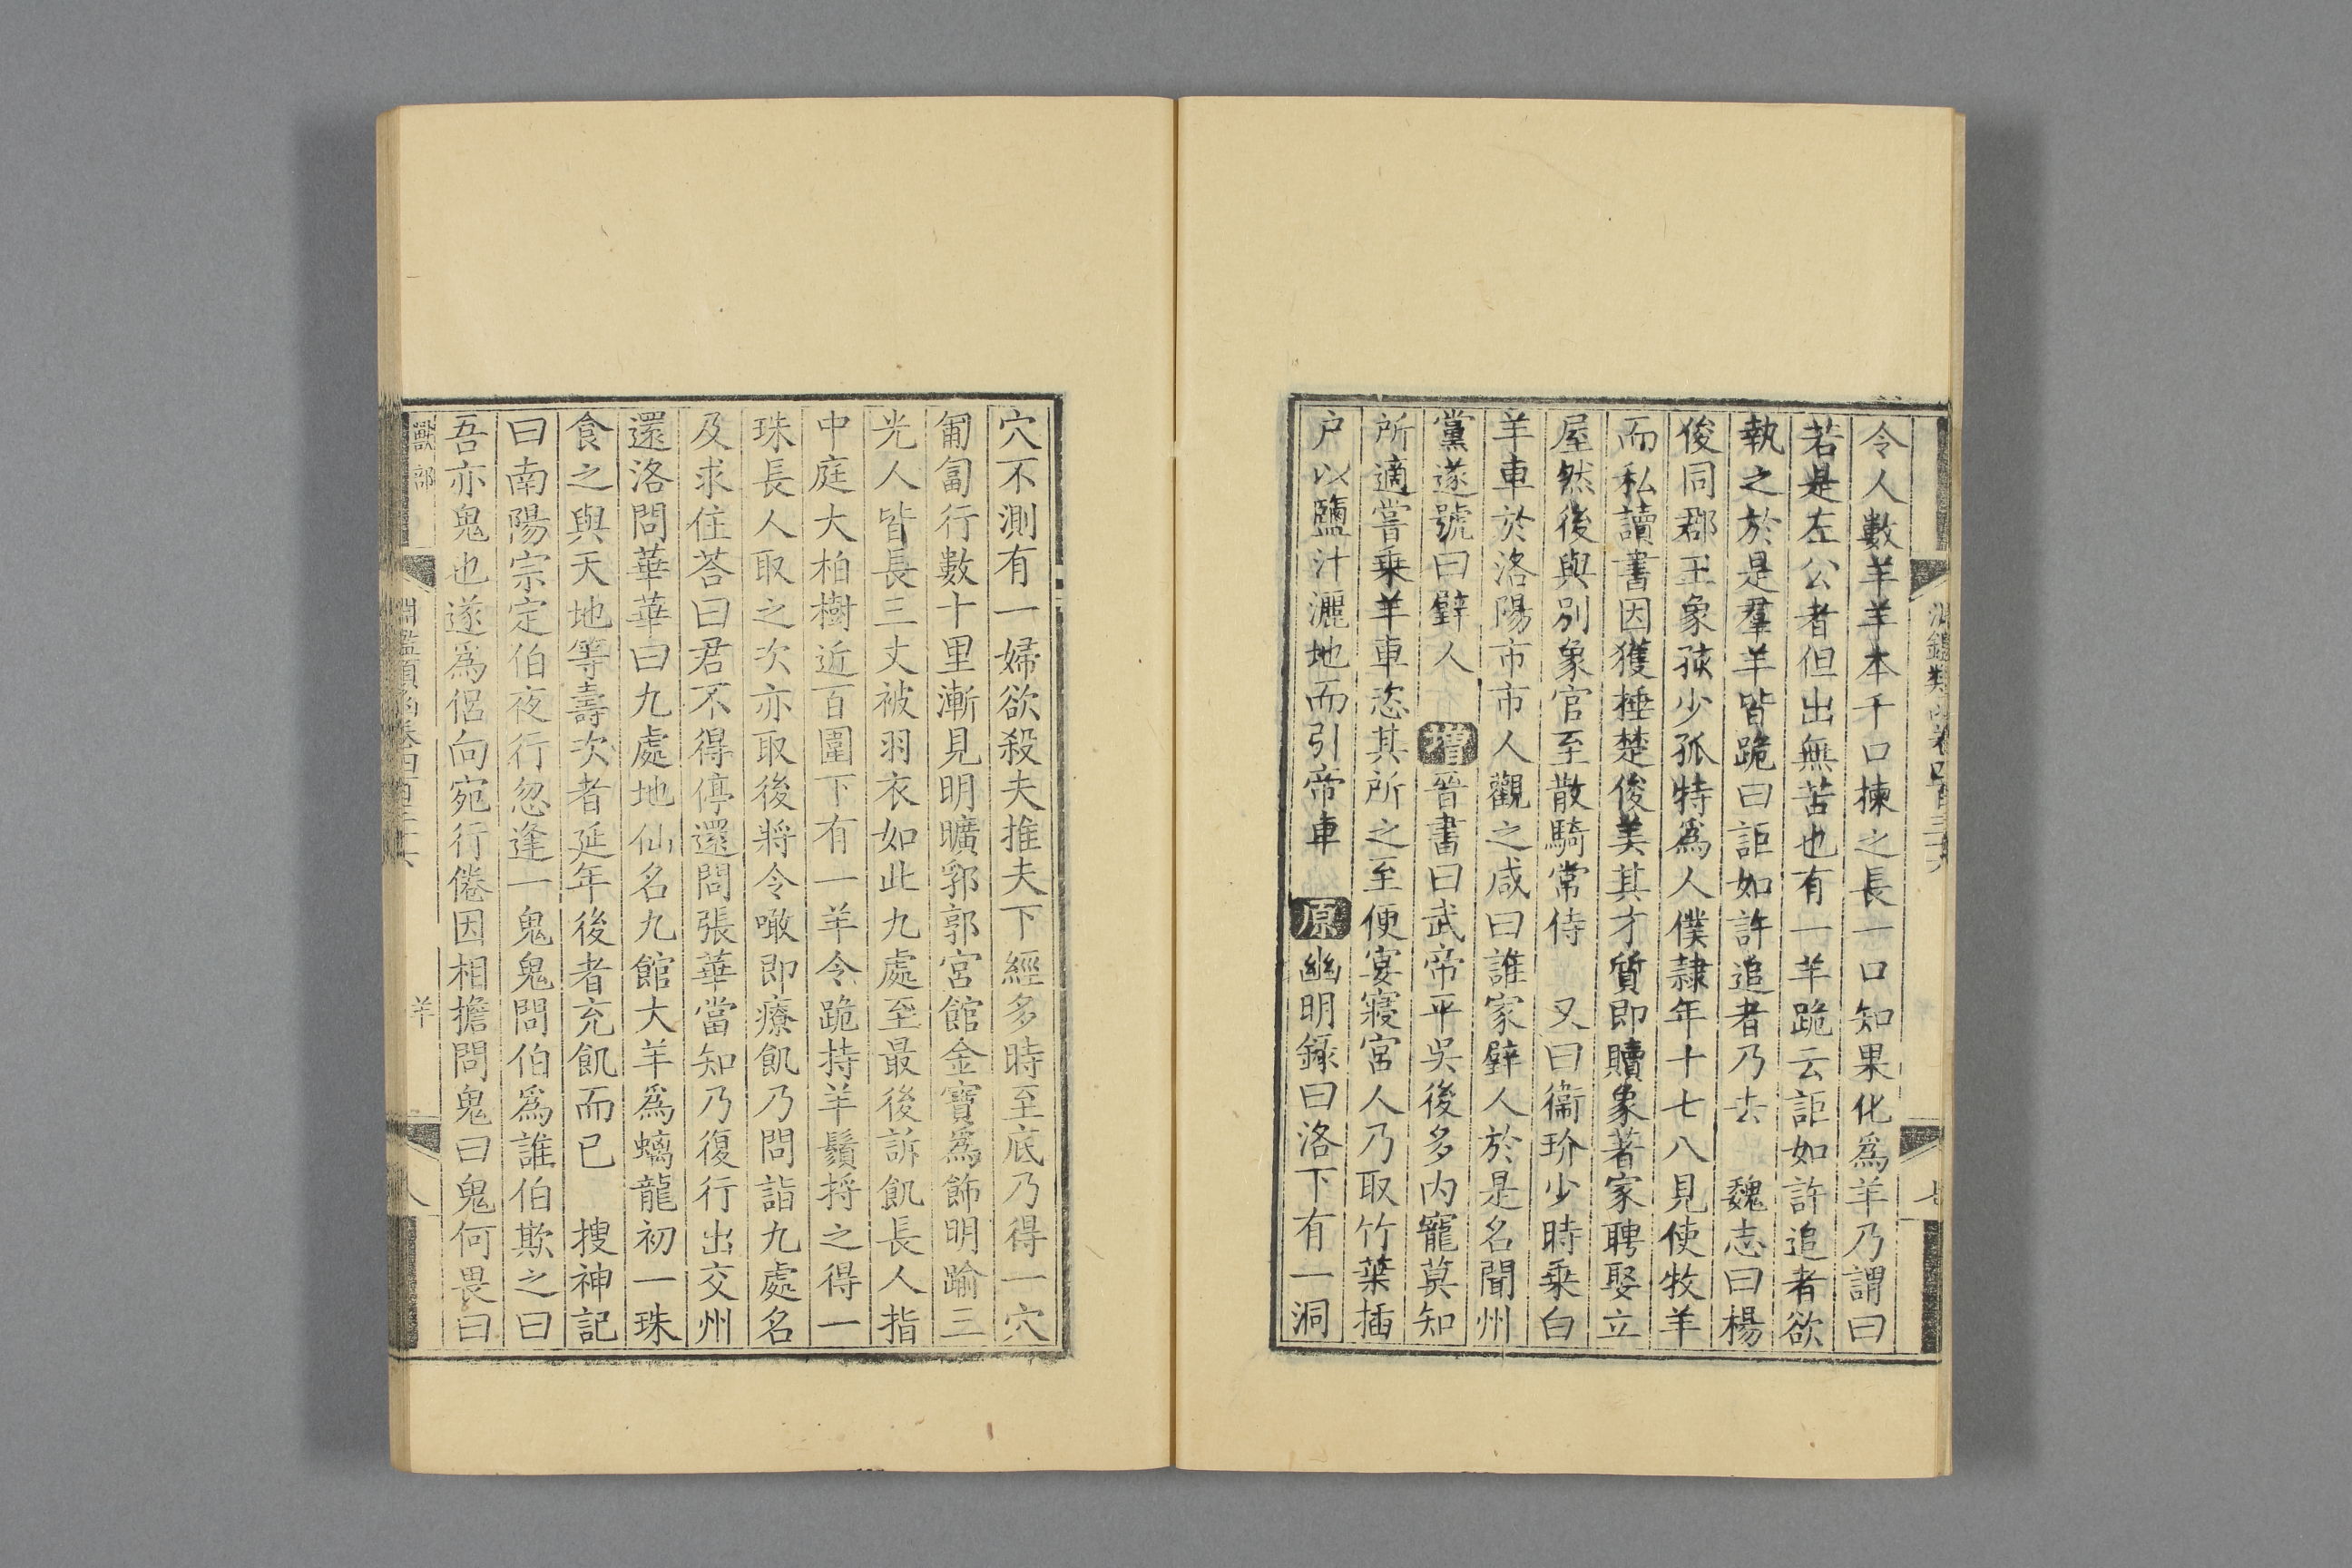 令人數羊羊本千口揀之長一口知果化爲羊乃謂曰
若是左公者但出無苦也有一羊跪云詎如許追者欲
執之於是羣羊皆跪曰詎如許追者乃去 魏志曰楊
俊同郡王象孩少孤特爲人僕隷年十七八見使牧羊
而私讀書因獲捶楚俊美其才質即贖象著家聘娶立
屋然後與別象官至散騎常侍 又曰衞玠少時乘白
羊車於洛陽市市人觀之咸曰誰家璧人於是名聞州
黨遂號曰璧人 增晉書曰武帝平吳後多內寵莫知
所適嘗乘羊車恣其所之至便宴寢宮人乃取竹葉插
户以鹽汁灑地而引帝車 原幽明錄曰洛下有一洞
穴不測有一婦欲殺夫推夫下經多時至底乃得一穴
匍匐行數十里漸見明曠郛郭宮館金寶爲飾明踰三
光人皆長三丈被羽衣如此九處至最後訴飢長人指
中庭大柏樹近百圍下有一羊令跪持羊鬚捋之得一
珠長人取之次亦取後將令噉即療飢乃問詣九處名
及求住荅曰君不得停還問張華當知乃復行出交州
還洛問華華曰九處地仙名九館大羊爲螭龍初一珠
食之與天地等壽次者延年後者充飢而已 搜神記
曰南陽宗定伯夜行忽逢一鬼鬼問伯爲誰伯欺之曰
吾亦鬼也遂爲侶向宛行倦因相擔問鬼曰鬼何畏曰
獸部 淵鑑類函卷四百三十六 羊 八